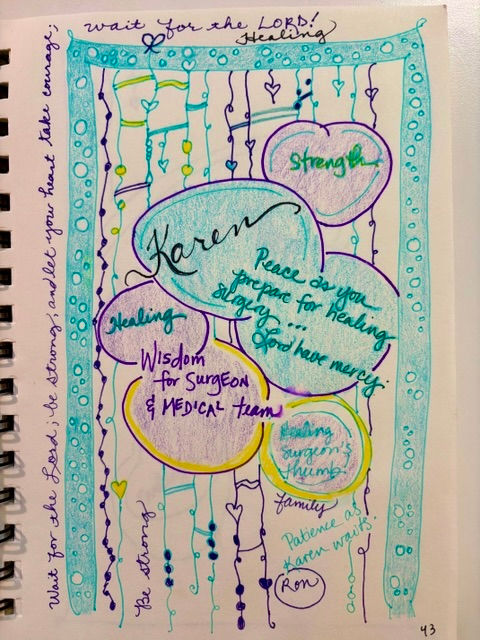 Wait for the LORD!
Healing
Wait for the Lord; be strong, and let your heart take courage;
Strength
Karen
Peace as you
prepare for healing
surgery ...
Lord have mercy.
Healing
Wisdom
for SurgEON
& MEDICAL team
Healing
Surgeon's
thumb
family
Patience as
Karen waits!
Be strong
Ron
43